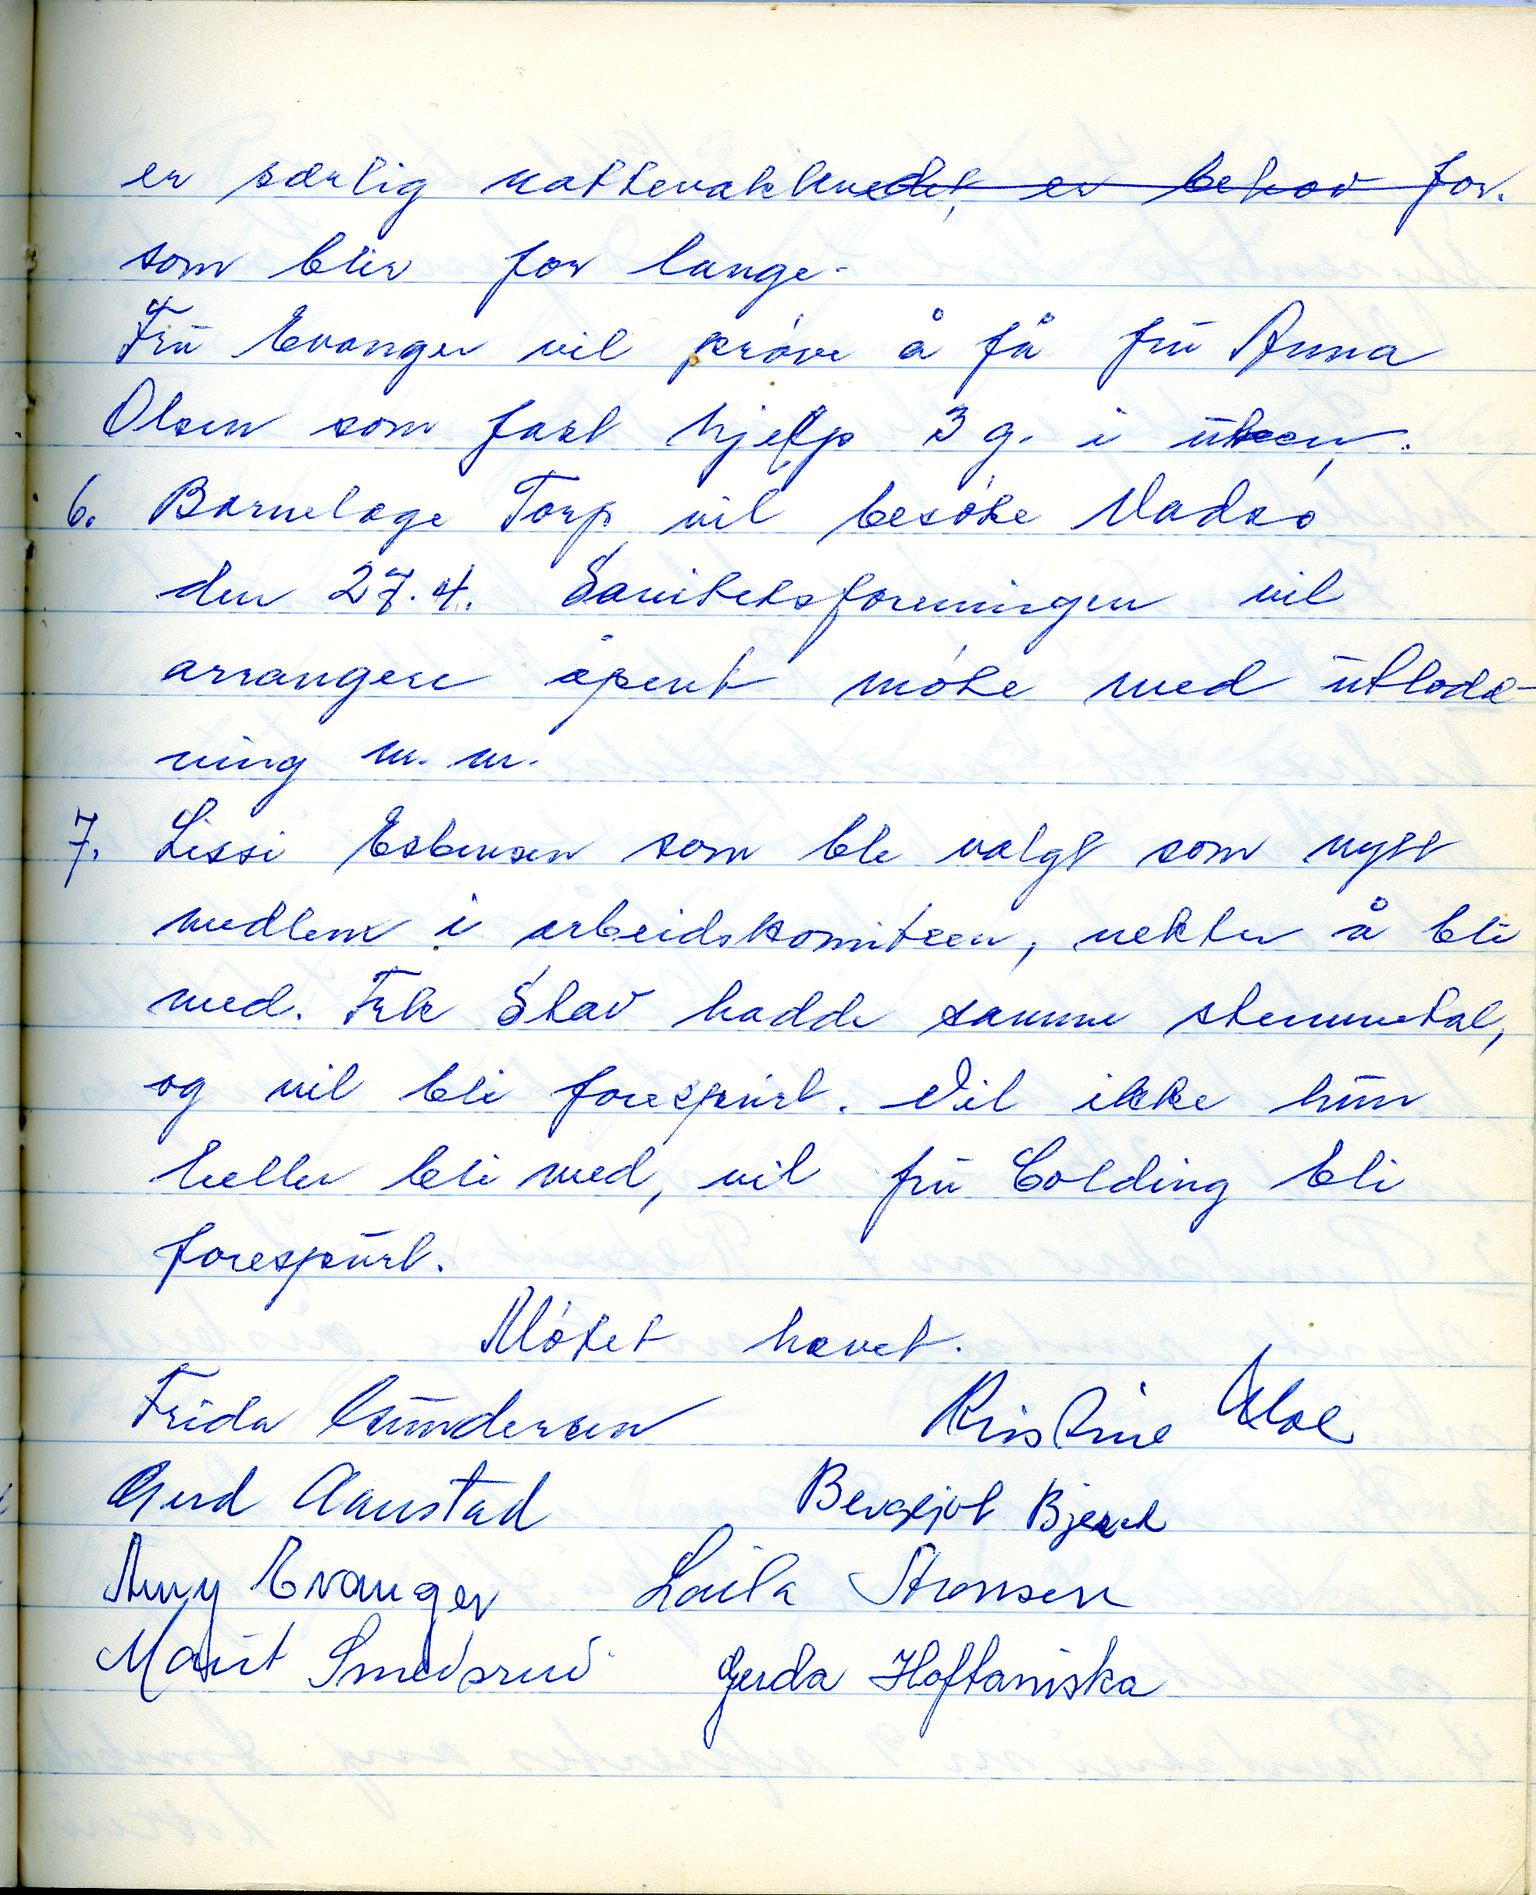 er særlig nattevaktene det er behov for.
som blir for lange.
Fru Evanger vil prøve å få fru Anna
Olsen som fast hjelp 3 g. i uken.
6. Barnelege Torp vil besøke Vadsø
den 27.4. Sanitetsforeningen vil
arrangere åpent møte med utlodd-
ning m. m.
7. Lissi Esbensen som ble valgt som nytt
medlem i arbeidskomiteen, nekter å bli
med. Frk Stav hadde samme stemmetal,
og vil bli forespurt. Vil ikke hun
heller bli med, vil fru Colding bli
forespurt.
Møtet hevet.
Frida Gundersen Kristine Moe
Gerd Aanstad Bergljot Bjerck
Amy Evanger Laila Aronsen
Marit Smedsrud Gerda Hoftaniska